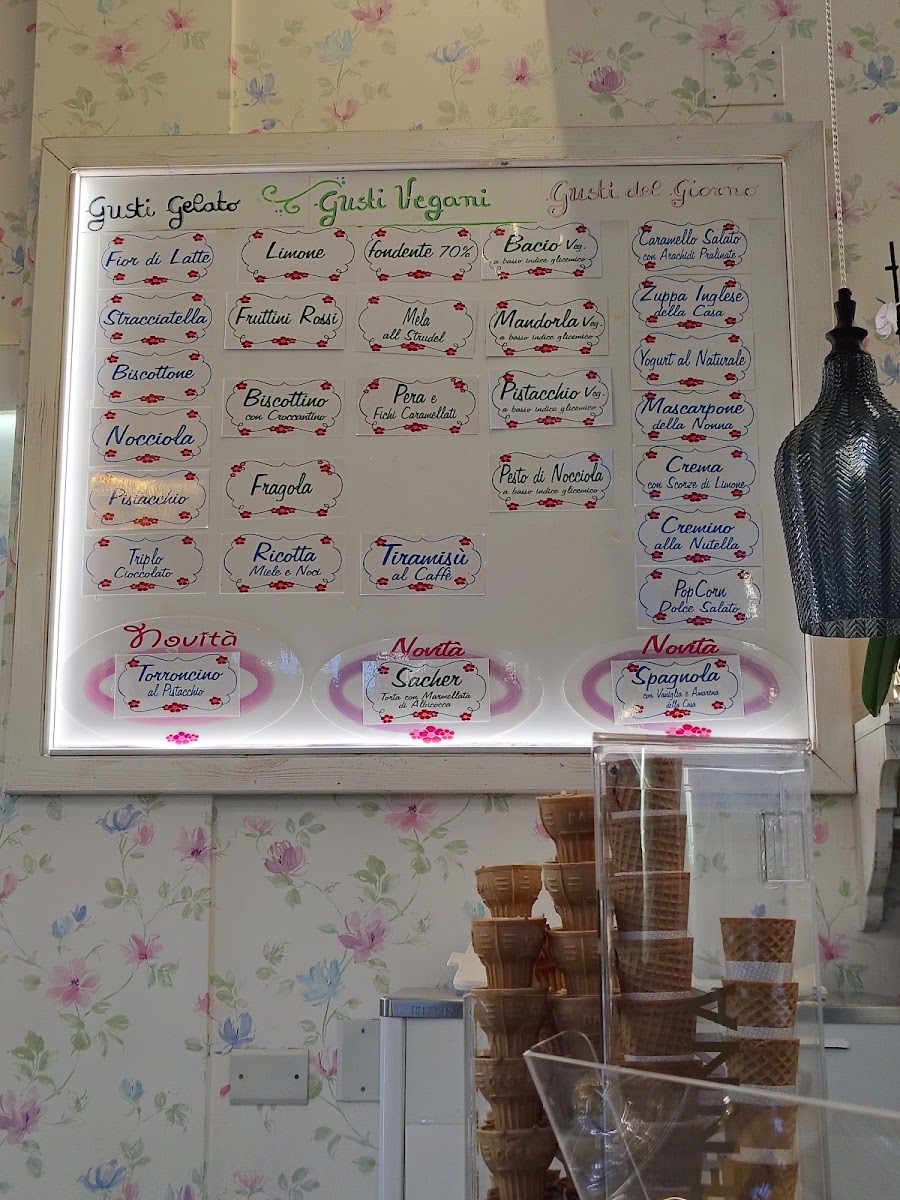 Gusti Gelato
Gusti Vegani
Gusti del Giorno
Fior di Latte
Stracciatella
Biscottone
Nocciola
Pistacchio
Triplo
Cioccolato
Limone
Fruttini Rossi
Biscottino
con Croccantino
Fragola
Ricotta
Miele e Noci
fondente 70%
Mela
all Strudel
Pera e
Fichi Caramellati
Tiramisù
al Caffè
Bacio Veg.
a basso indice glicemico
Mandorla Veg.
a basso indice glicemico
Pistacchio Veg.
a basso indice glicemico
Pesto di Nocciola
a basso indice glicemico
Caramello Salato
con Arachidi Pralinate
Zuppa Inglese
della Casa
Yogurt al Naturale
Mascarpone
della Nonna
Crema
con Scorze di Limone
Cremino
alla Nutella
PopCorn
Dolce Salato
Novità
Torroncino
al Pistacchio
Novità
Sacher
Torta con Marmellata
di Albicocca
Novità
Spagnola
con Vaniglia e Amarena
della Casa